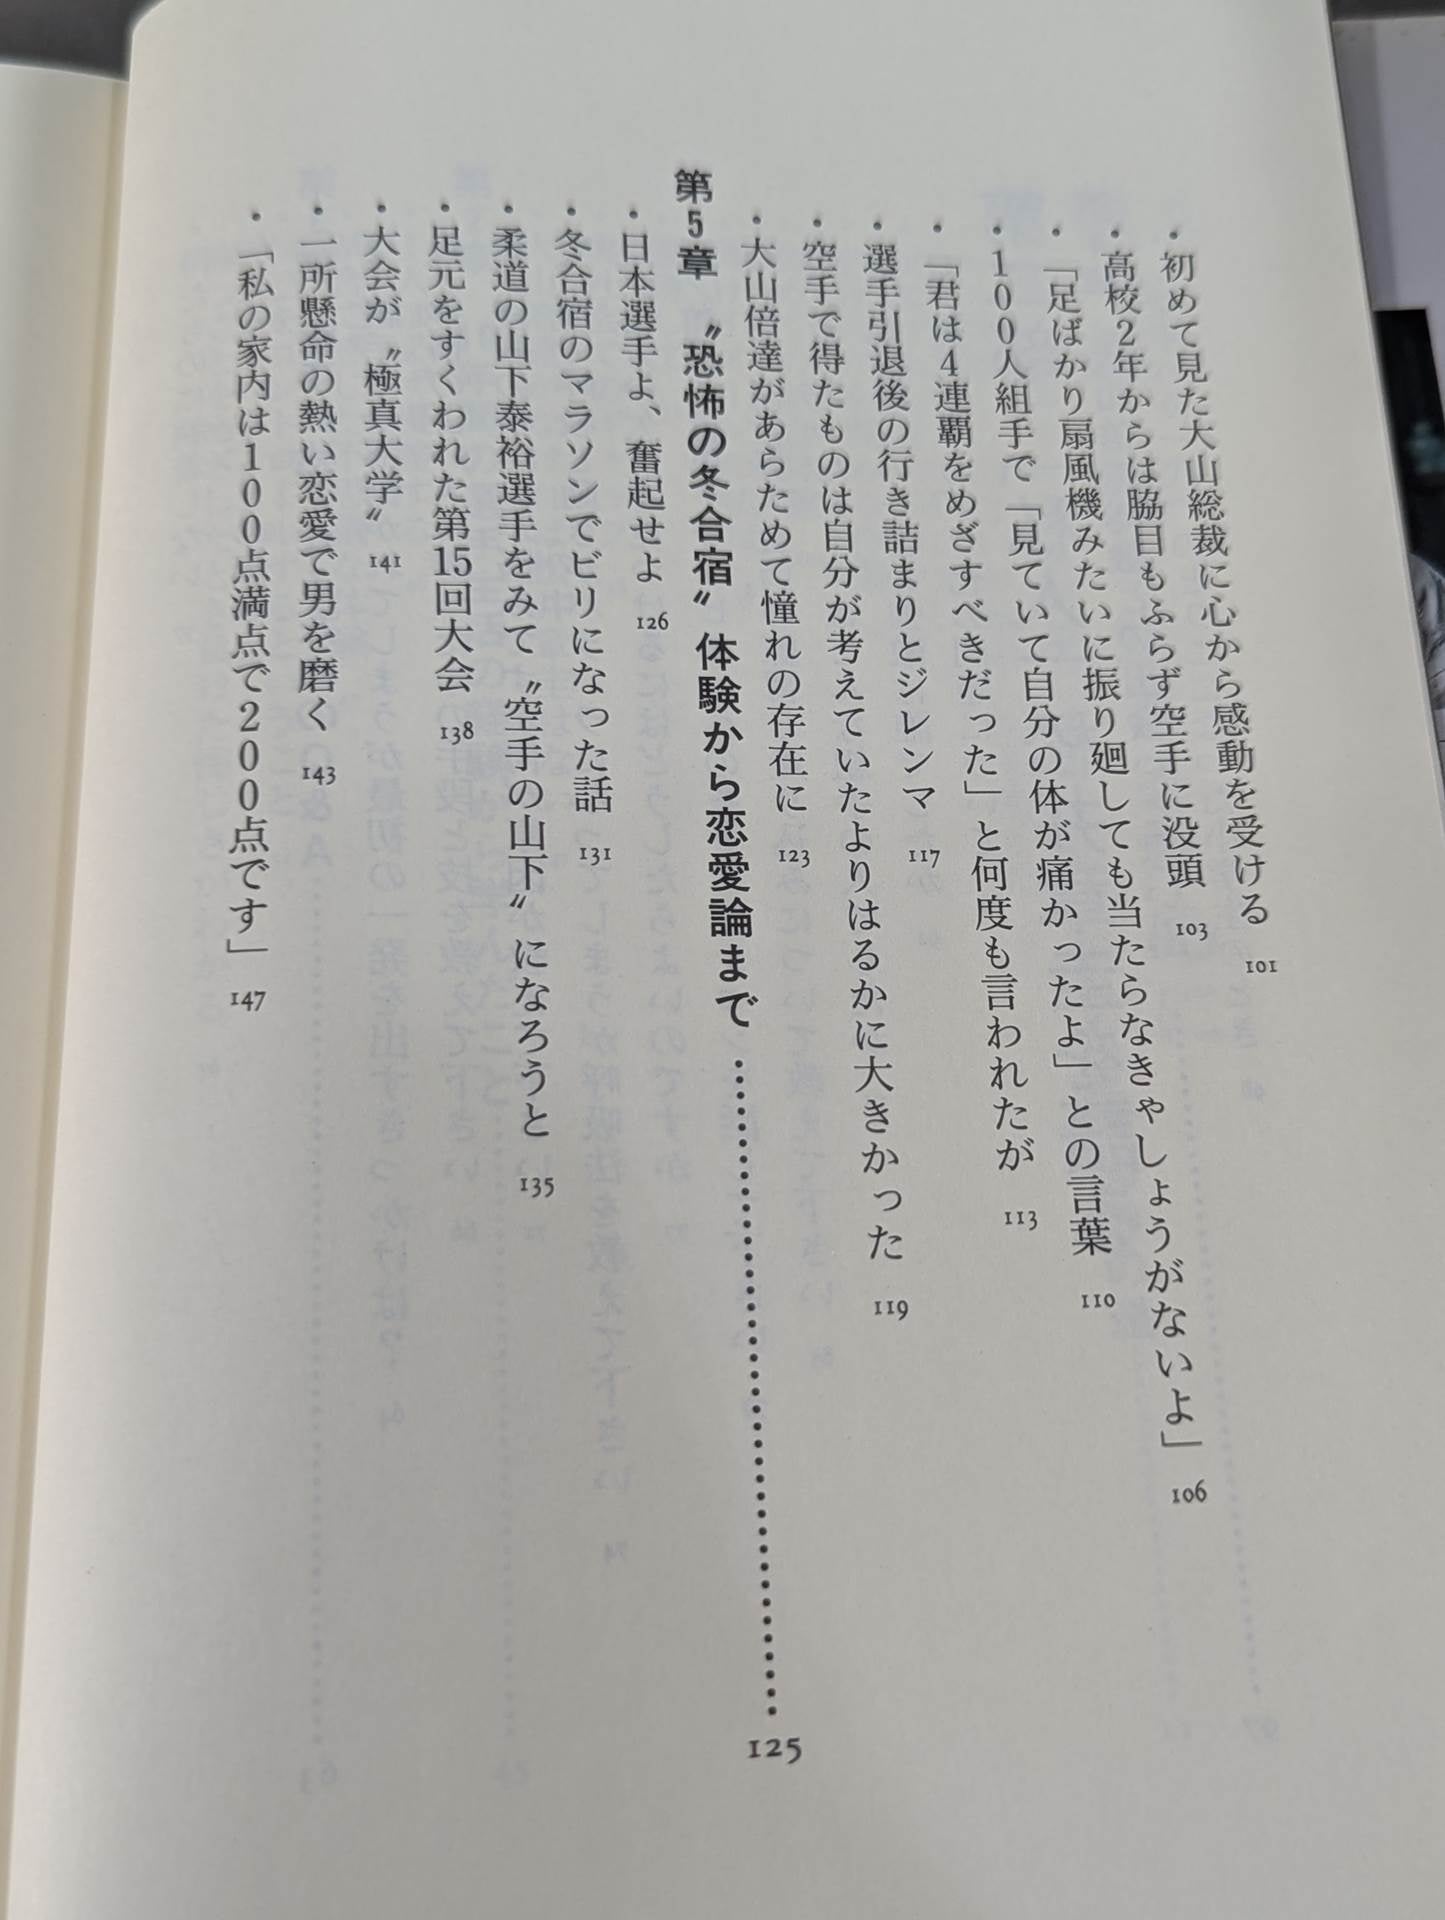 ・初めて見た大山総裁に心から感動を受ける 101
・高校2年からは脇目もふらず空手に没頭 103
・「足ばかり扇風機みたいに振り廻しても当たらなきゃしょうがないよ」 106
・100人組手で「見ていて自分の体が痛かったよ」との言葉 110
・「君は4連覇をめざすべきだった」と何度も言われたが 113
・選手引退後の行き詰まりとジレンマ 117
・空手で得たものは自分が考えていたよりはるかに大きかった 119
・大山倍達があらためて憧れの存在に 123
第5章 〝恐怖の冬合宿〟体験から恋愛論まで………………………… 125
・日本選手よ、奮起せよ 126
・冬合宿のマラソンでビリになった話 131
・柔道の山下泰裕選手をみて〝空手の山下〟になろうと 135
・足元をすくわれた第15回大会 138
・大会が〝極真大学〟 141
・一所懸命の熱い恋愛で男を磨く 143
・「私の家内は100点満点で200点です」 147